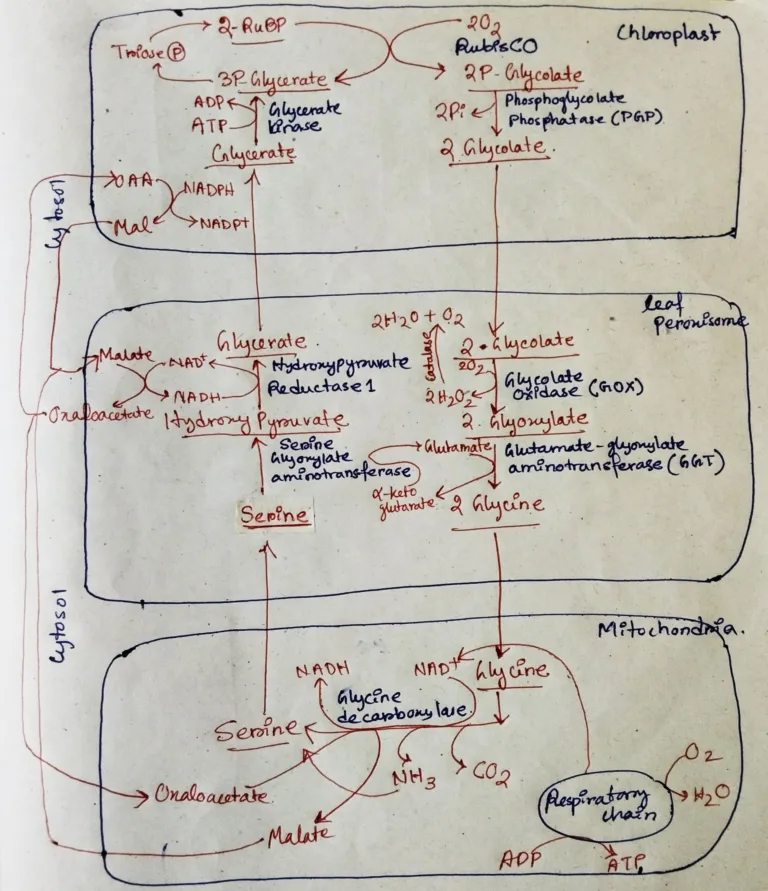 Chloroplast
2-RuBP
2O2
RubisCO
Triose P
3P-Glycerate
2P-Glycolate
ADP
ATP
Glycerate
kinase
2Pi
Phosphoglycolate
Phosphatase (PGP)
Glycerate
2 Glycolate.
Cytosol
OAA
NADPH
Mal
NADP+
leaf
Peroxisome
2H2O + O2
Catalase
Malate
NAD+
Glycerate.
Hydroxypyruvate
Reductase 1
NADH
2 Glycolate
2O2
2H2O2
Glycolate
Oxidase (GOX)
Oxaloacetate
Hydroxy Pyruvate
2 Glyoxylate
Serine
Glyoxylate
aminotransferase
Glutamate
α-keto
glutarate
Glutamate-glyoxylate
aminotransferase (GGT)
Serine
2 Glycine
Cytosol
Mitochondria.
NADH
NAD+
Glycine
Glycine
decarboxylase
Serine
NH3
CO2
Oxaloacetate
Malate
Respiratory
chain
O2
H2O
ADP
ATP